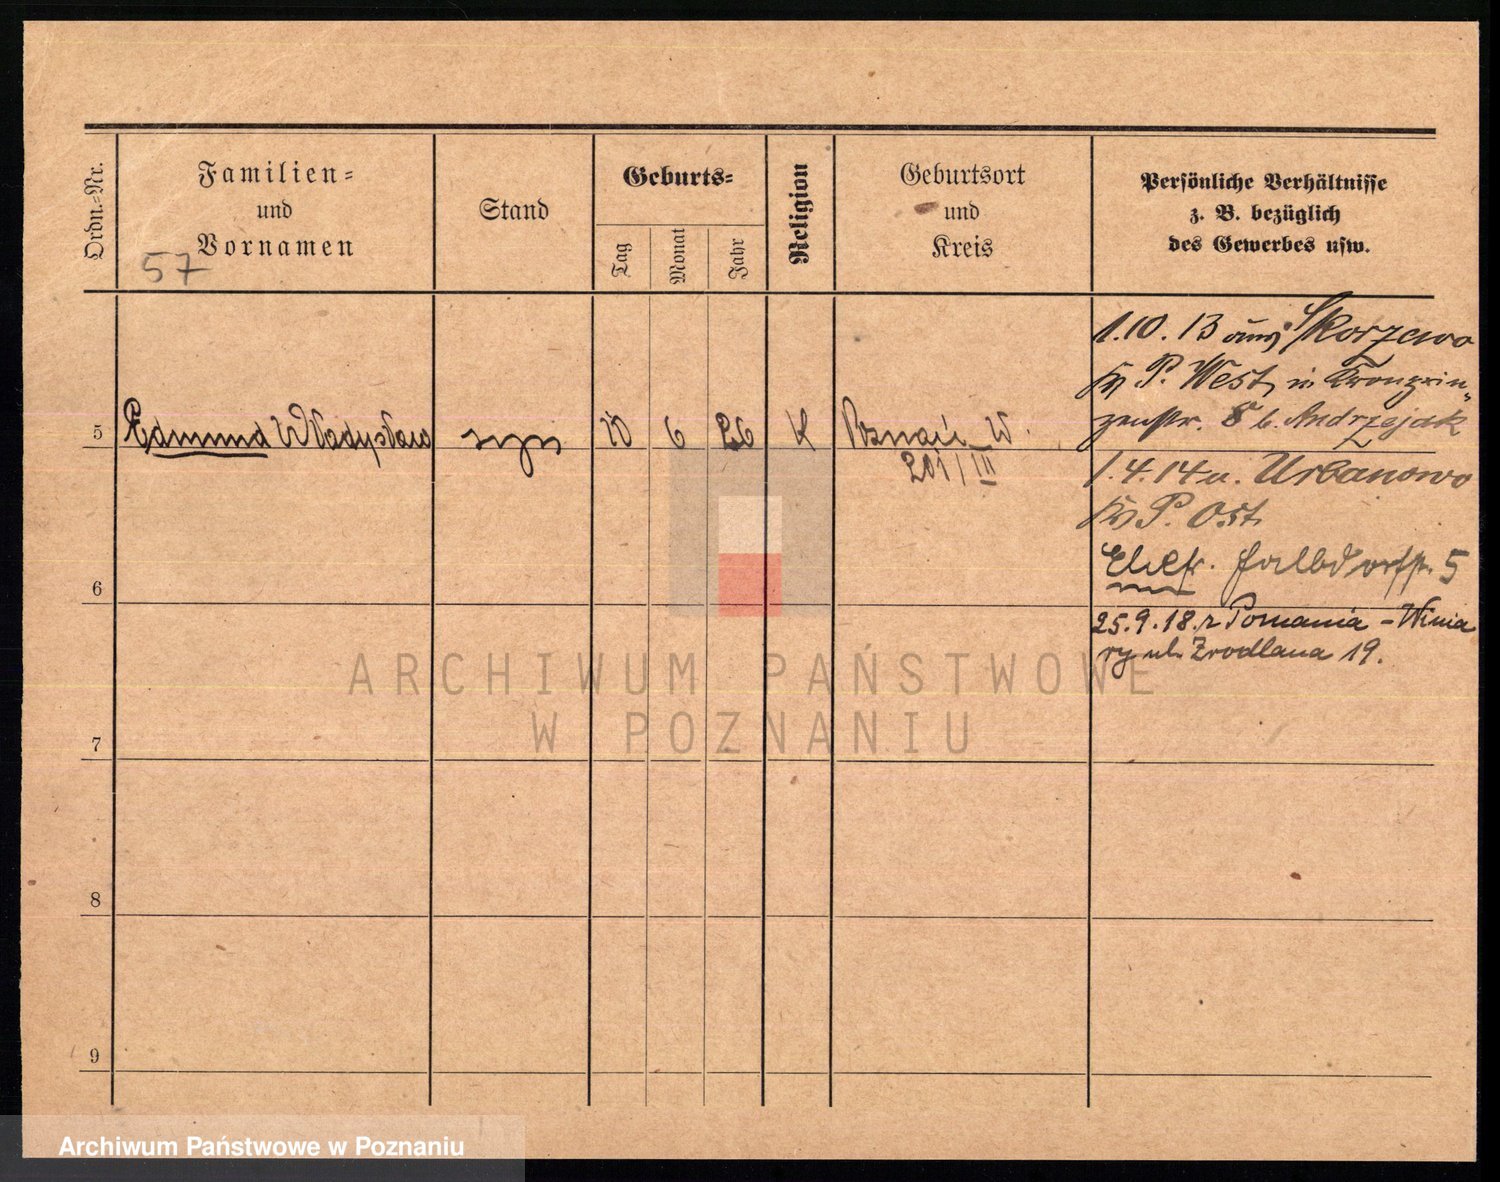 Ordn.-Nr.
Familien-
und
Vornamen
57
Stand
Geburts-
Tag
Monat
Jahr
Religion
Geburtsort
und
Kreis
Persönliche Verhältnisse
z. B. bezüglich
des Gewerbes usw.
5
Edmund Władysław
syn
10
6
26
K
Poznań W.
201/III
1.10.13 Skorzewo
P. West, in Kronprin-
zenstr. 8 b. Andrzejak
1.4.14 u. Urbanowo
P. Ost.
5
25.9.18. z Poznania - Winia
ry ul. Źrodlana 19.
6
7
8
9
ARCHIWUM PAŃSTWOWE
W POZNANIU
Archiwum Państwowe w Poznaniu